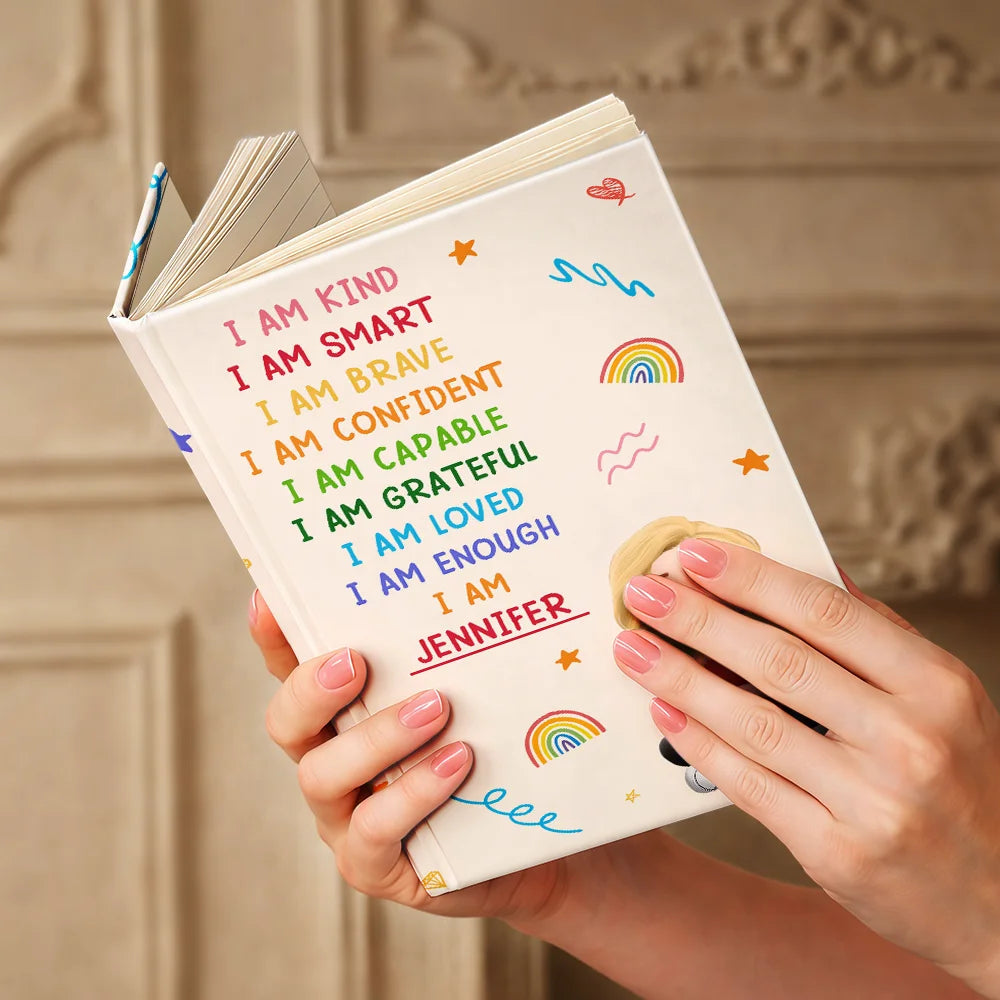 I AM KIND
I AM SMART
I AM BRAVE
I AM CONFIDENT
I AM CAPABLE
I AM GRATEFUL
I AM LOVED
I AM ENOUGH
I AM
JENNIFER